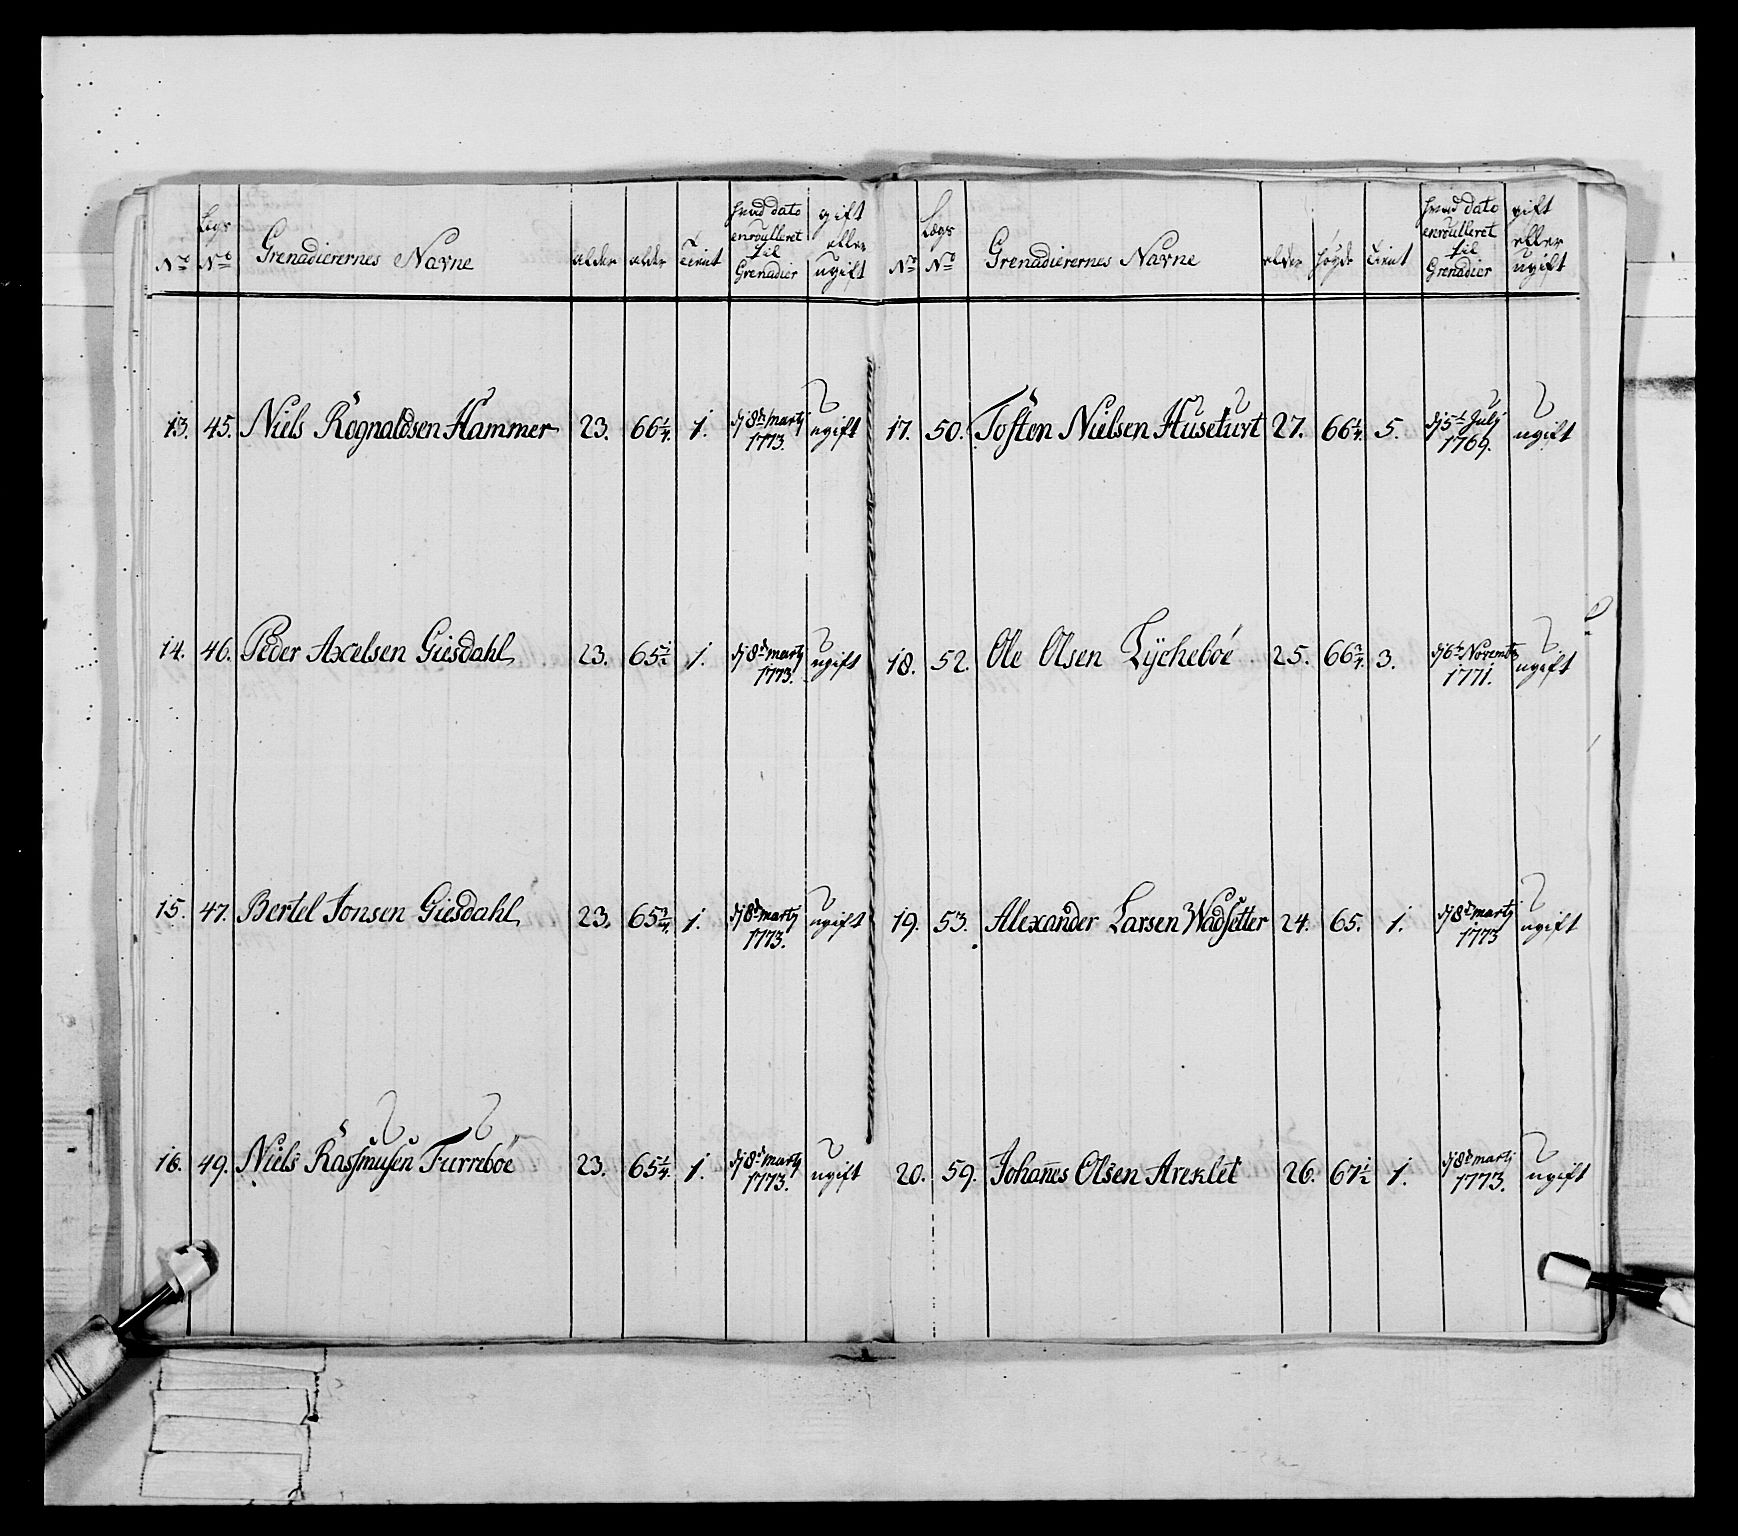 No Legs No Grenadierernes Navne alder alder Tient hvad dato enroulleret til Grenadier gift eller ugift
13. 45. Niels Rognaldsen Hammer 23. 66 1/4. 1. dj 8de martj 1773. ugift
14. 46. Peder Axelsen Giesdahl 23. 65 1/2 1. dj 8de martj 1773. ugift
15. 47. Bertel Jonsen Giesdahl 23. 65 3/4. 1. dj 8de martj 1773. ugift
16. 49. Niels Rassmusen Furreboe 23. 65 1/4. 1. dj 8de martj 1773. ugift
No Lægs No Grenadierernes Navne alder høyde Tient hvad dato enroulleret til Grenadier gift eller ugift
17. 50. Tosten Nielsen Husetuft 27. 66 1/4. 5. dj 5te Julj 1769. ugift
18. 52. Ole Olsen Lycheboe 25. 66 3/4. 3. dj 6te Novembr 1771. ugift
19. 53. Alexander Larsen Wadsetter 24. 65. 1. dj 8de martj 1773 ugift
20. 59. Johanes Olsen Areklet 26. 67 1/2 1. dj 8de martj 1773. ugift